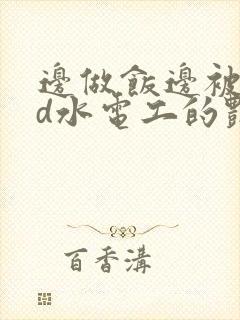 邊做飯邊被
d水電工的豔
百香溝